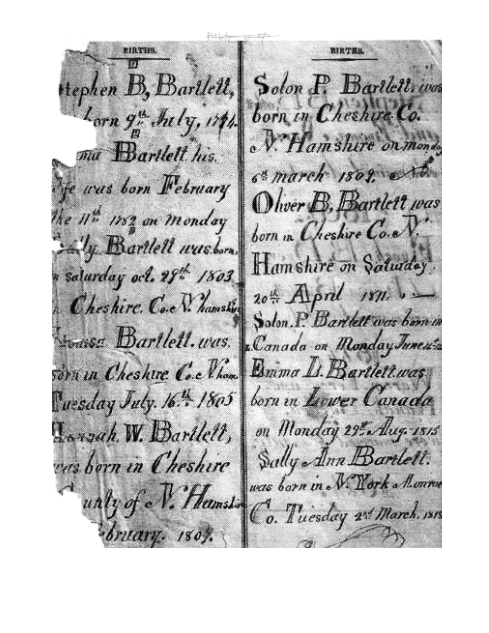 BIRTHS.
tephen B, Bartlett,
orn 9th July,
ma Bartlett his.
ife was born February
the 11th on Monday
ily Bartlett was born,
n saturday oct. 29th 1803
n Cheshire. Co. N. hamshir
Louisa Bartlett. was.
born in Cheshire Co. N ham
Tuesday July. 16th 1805
Hannah. W. Bartlett,
was born in Cheshire
County of N. Hamshir
ebruary. 1807.
BIRTHS.
Solon P. Bartlett. was
born in Cheshire Co.
N. Hamshire on monday
6th march 1809.
Oliver B, Bartlett was
born in Cheshire Co. N.
Hamshire on Saturday
20th April 1811.
Solon. P. Bartlett was born in
Canada on Monday June
Emma L. Bartlett was
born in Lower Canada
on Monday 29th Aug. 1815
Sally Ann Bartlett.
was born in N. York Monroe
Co. Tuesday 2nd March. 1818